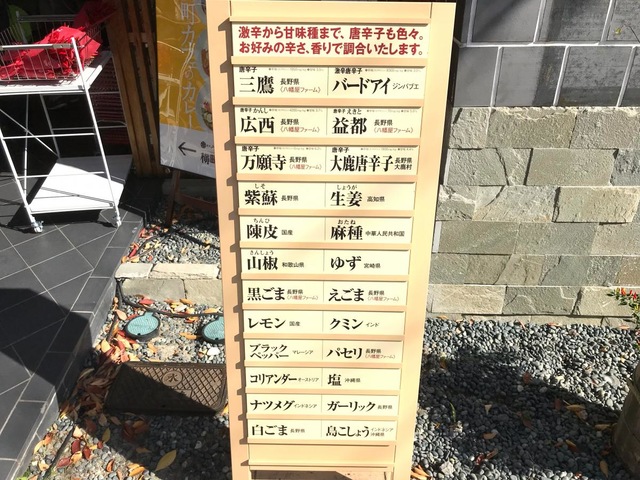 激辛から甘味種まで、唐辛子も色々。
お好みの辛さ、香りで調合いたします。
唐辛子
三鷹 長野県
（八幡屋ファーム）
激辛唐辛子
バードアイ ジンバブエ
唐辛子 かんしょ
広西 長野県
（八幡屋ファーム）
唐辛子 えきと
益都 長野県
（八幡屋ファーム）
唐辛子
万願寺 長野県
（八幡屋ファーム）
唐辛子
大鹿唐辛子 長野県
大鹿村
しそ
紫蘇 長野県
しょうが
生姜 高知県
ちんひ
陳皮 国産
おたね
麻種 中華人民共和国
さんしょう
山椒 和歌山県
ゆず 宮崎県
黒ごま 長野県
（八幡屋ファーム）
えごま 長野県
（八幡屋ファーム）
レモン 国産
クミン インド
ブラック
ペッパー マレーシア
パセリ 長野県
（八幡屋ファーム）
コリアンダー オーストリア
塩 沖縄県
ナツメグ インドネシア
ガーリック 長野県
白ごま 長野県
島こしょう インドネシア
沖縄県